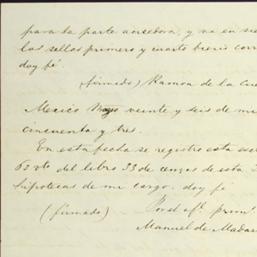 para la parte acreedora, y va en
los sellos primero y cuarto bienio
doy fé
(firmado) Ramon de la
Mexico Mayo veinte y seis de
cincuenta y tres.
En esta fecha se registró esta
63 vto del libro 33 de censos de esta
hipotecas de mi cargo. doy fé
(firmado) Por el of.
Manuel de